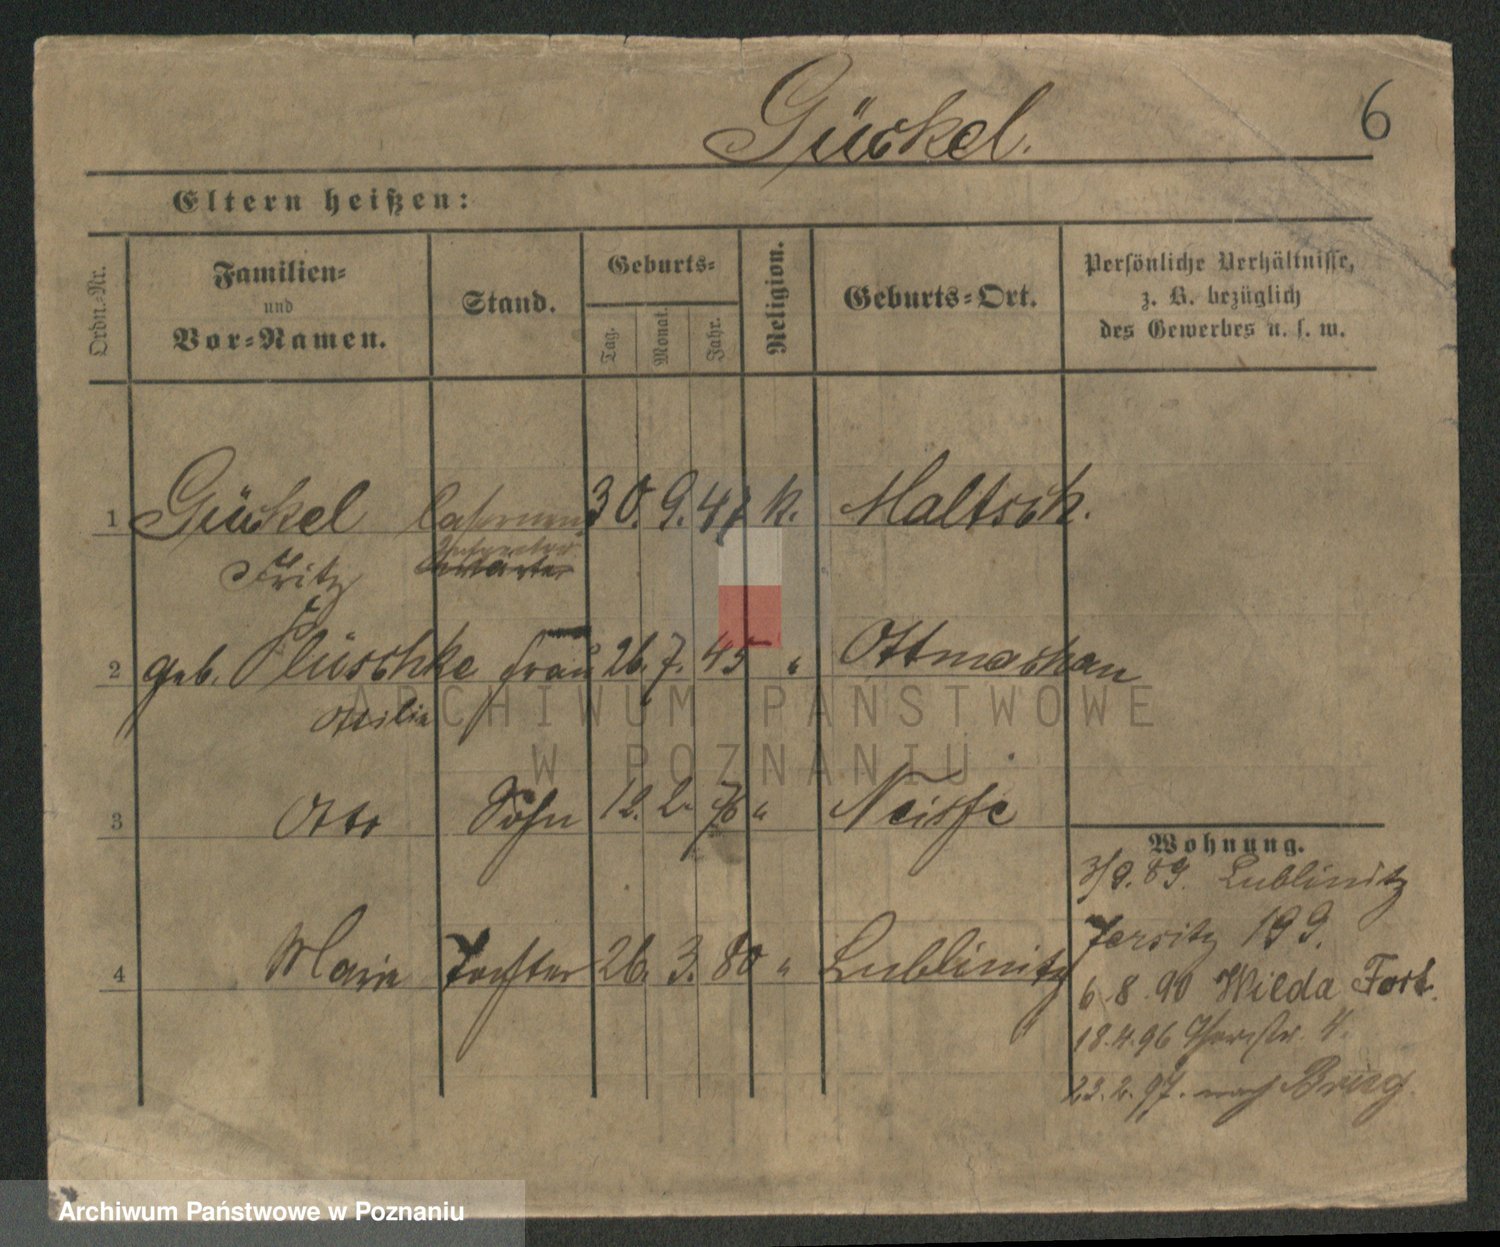 6
Gückel.
Eltern heißen:
Ordn.-Nr.
Familien-
und
Vor-Namen.
Stand.
Geburts-
Tag.
Monat.
Jahr.
Religion.
Geburts-Ort.
Persönliche Verhältnisse,
z. B. bezüglich
des Gewerbes u. s. w.
1 Gückel Casernen 30. 9. 47 k. Maltsch.
Fritz
2 geb. Plüschke Frau 26. 7. 45 " Ottmachau
Ottilie
3 Otto Sohn 12. 2. 76 " Neisse
4 Marie Tochter 26. 3. 80 " Lublinitz
Wohnung.
3/9. 89. Lublinitz
Jersitz 199.
6. 8. 90 Wilda Fort.
18. 4. 96
23. 2. 97. nach Brieg
ARCHIWUM PAŃSTWOWE
W POZNANIU
Archiwum Państwowe w Poznaniu